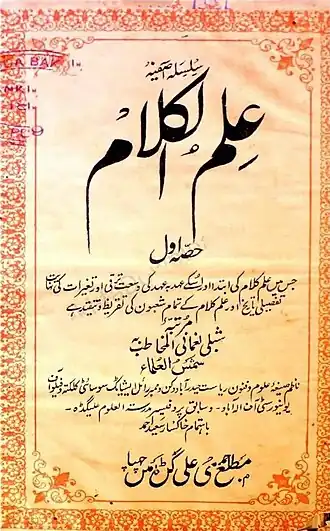 سلسلہ آصفیہ
علم الکلام
حصہ اول
جس میں علم کلام کی ابتدا اور اسکے عہد بہ عہد کی وسعت ترقی اور تغیرات کی نہایت
تفصیلی تاریخ اور علم کلام کے تمام شعبوں کی تقریظ و تنقید ہے
مرتبہ
شبلی نعمانی المخاطب بہ
شمس العلماء
ناظم صیغہ علوم و فنون ریاست حیدرآباد دکن و ممبر رائل ایشیاٹک سوسائٹی کلکتہ و فیلو آف
یونیورسٹی آف الہ آباد۔ و سابق پروفیسر مدرسۃ العلوم علیگڈہ۔
باہتمام خاکسار سعید احمد
مطبع احمدی علی گڑہ میں چھپا